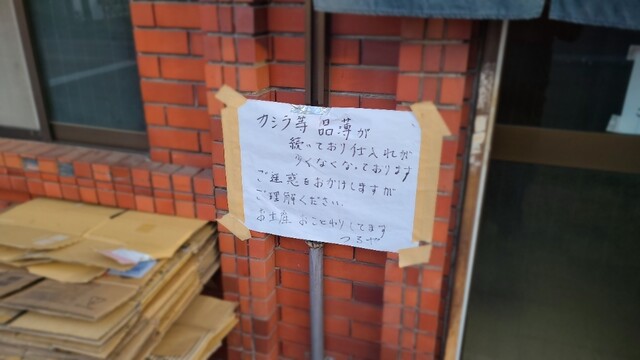 カシラ等 品薄が
続いており仕入れが
少くなくなっております
ご迷惑をおかけしますが
ご理解ください.
お土産 おことわりしてます
つるや